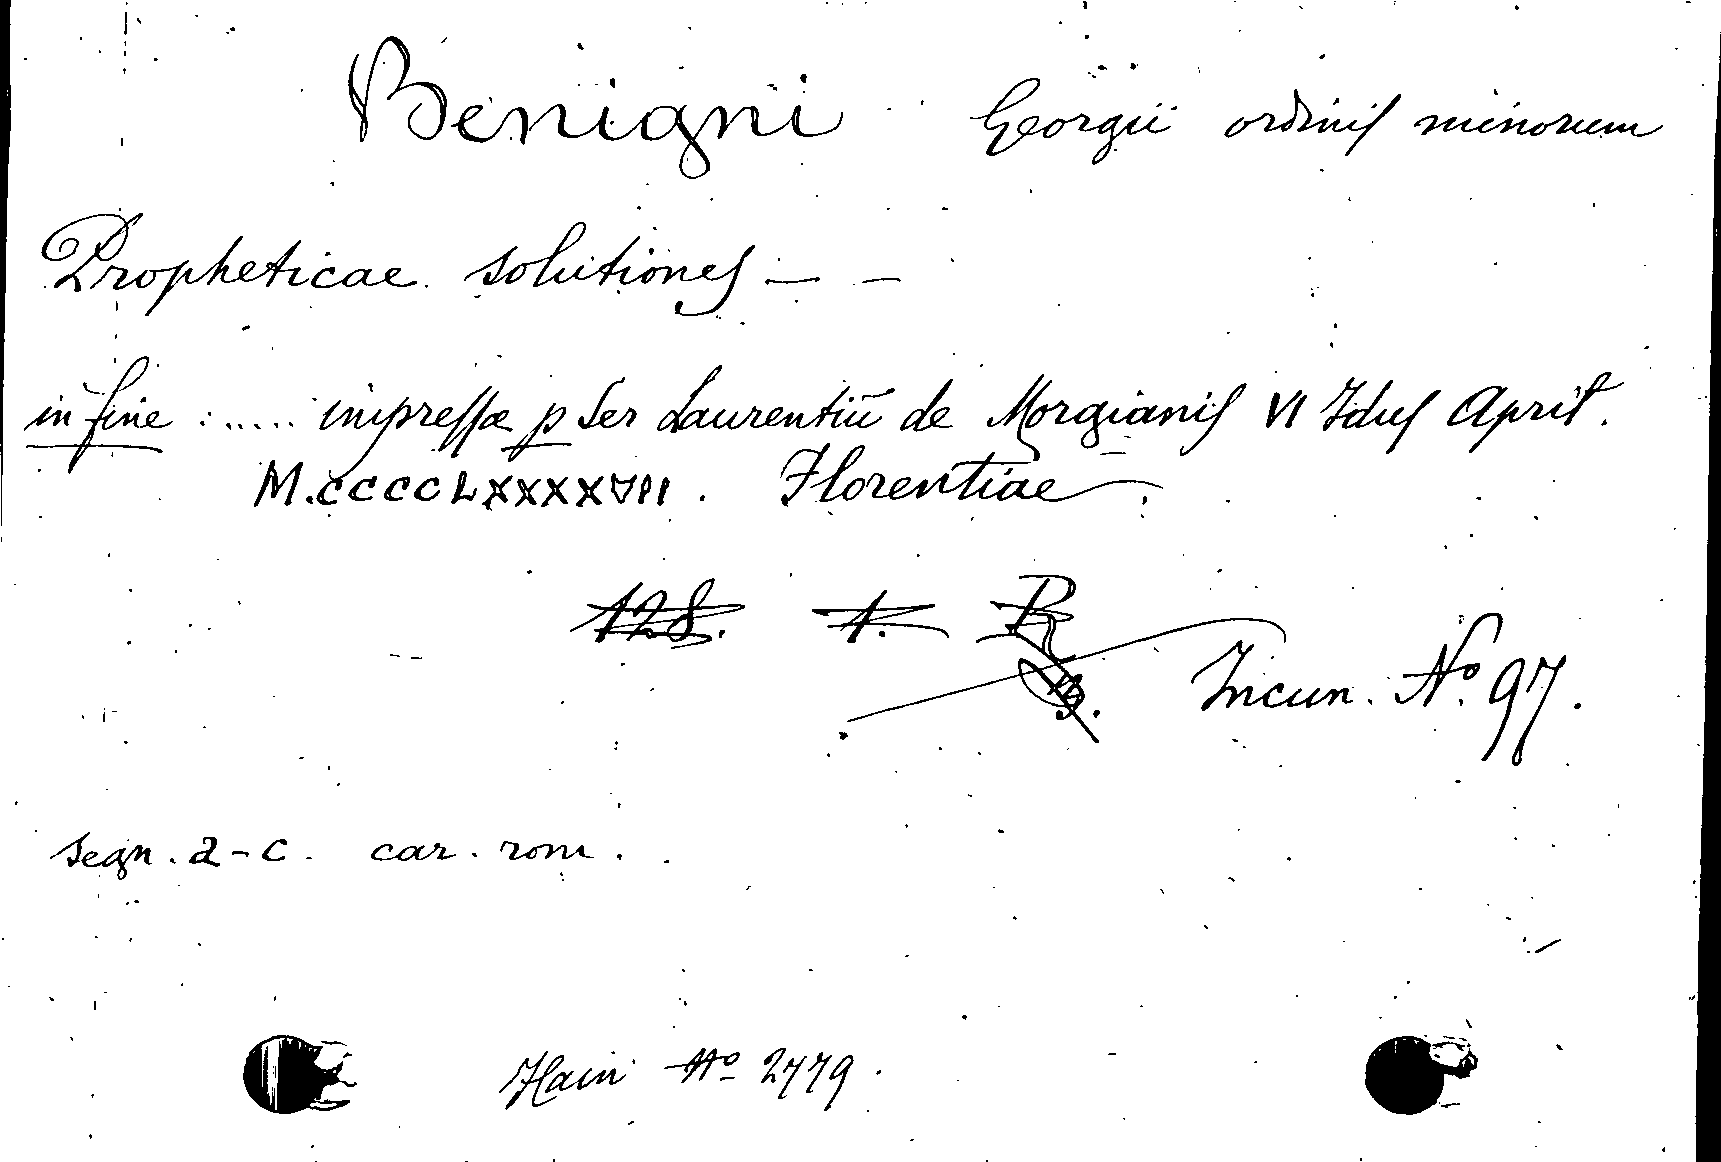 Benigni Georgii ordinis minorum
Propheticae solutiones — —
in fine : ..... impressæ p Ser Laurentiū de Morgianis VI Idus April.
M.CCCCLXXXXVII. Florentiae
128. 1. R
Incun. Nº. 97.
segn. a-c. car. rom.
Hain Nº 2779.